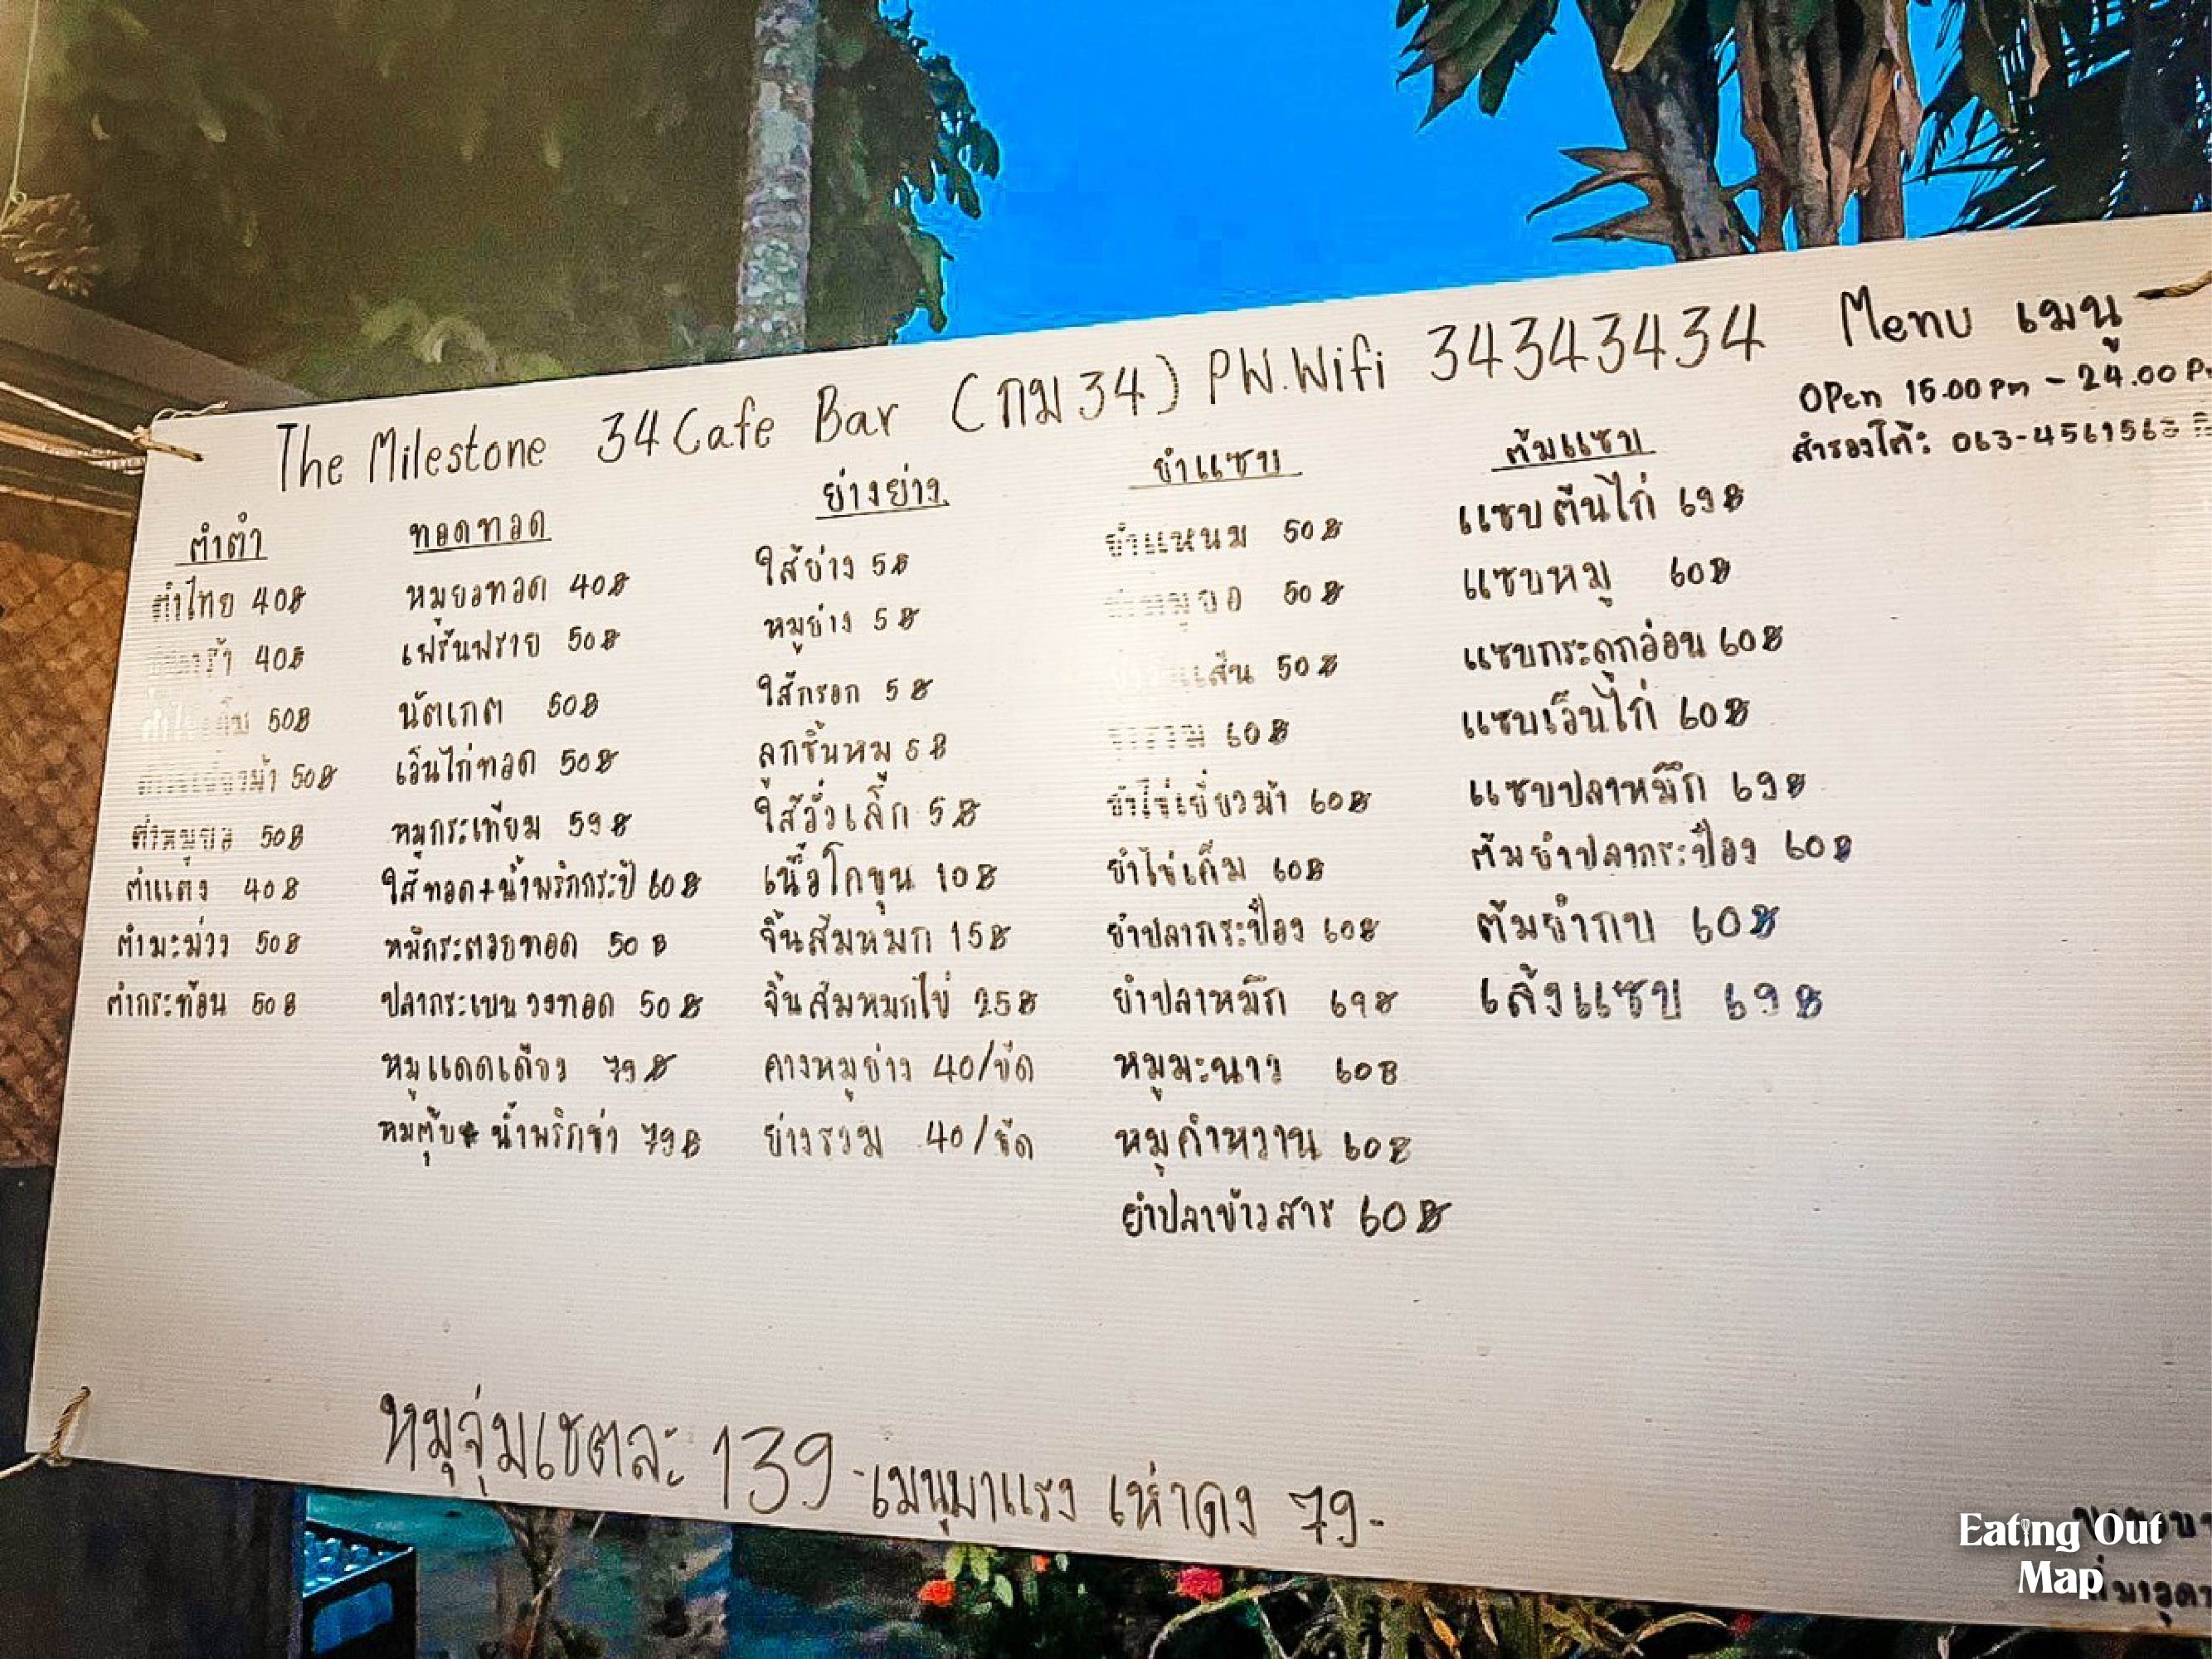 The Milestone 34 Cafe Bar (กม 34) PW.Wifi 34343434 Menu เมนู
OPen 15.00 Pm - 24.00
สำรองโต๊ะ 063-456156
ตำตำ
ตำไทย 40฿
40฿
50฿
50฿
ตำหมูยอ 50฿
ตำแตง 40฿
ตำมะม่วง 50฿
ตำกระท้อน 50฿
ทอดทอด
หมูยอทอด 40฿
เฟร้นฟราย 50฿
นัตเกต 50฿
เอ็นไก่ทอด 50฿
หมูกระเทียม 59฿
ใส้ทอด+น้ำพริกกระปิ 60฿
หมึกระตอยทอด 50฿
ปลากระเบนวงทอด 50฿
หมูแดดเดียว 79฿
หมูตุ้บ+น้ำพริกข่า 79฿
ย่างย่าง
ใส้ย่าง 5฿
หมูย่าง 5฿
ใส้กรอก 5฿
ลูกชิ้นหมู 5฿
ใส้อั่วเล็ก 5฿
เนื้อโคขุน 10฿
จิ้นส้มหมก 15฿
จิ้นส้มหมกไข่ 25฿
คางหมูย่าง 40/ขีด
ย่างรวม 40/ขีด
ยำแซบ
ยำแหนม 50฿
50฿
50฿
ยำรวม 60฿
ยำไข่เยี่ยวม้า 60฿
ยำไข่เค็ม 60฿
ยำปลากระป๋อง 60฿
ยำปลาหมึก 69฿
หมูมะนาว 60฿
หมูคำหวาน 60฿
ยำปลาข้าวสาร 60฿
ต้มแซบ
แซบตีนไก่ 69฿
แซบหมู 60฿
แซบกระดูกอ่อน 60฿
แซบเอ็นไก่ 60฿
แซบปลาหมึก 69฿
ต้มยำปลากระป๋อง 60฿
ต้มยำกบ 60฿
เล้งแซบ 69฿
หมูจุ่มเซตละ 139 -เมนูมาแรง เห่าดง 79-
Eating Out
Map